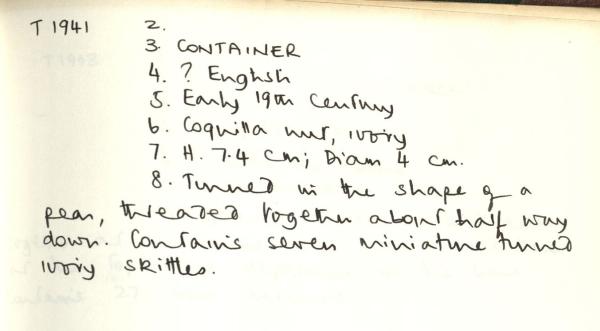 T 1941 2.
3. CONTAINER
4. ? English
5. Early 19th Century
6. Coquilla nut, ivory
7. H. 7.4 cm; Diam 4 cm.
8. Turned in the shape of a
pear, threaded together about half way
down. Contains seven miniature turned
ivory skittles.